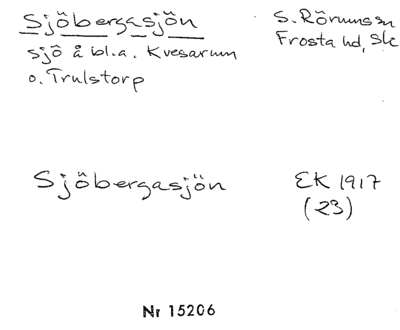 Sjöbergasjön
S. Rörums sn
sjö å bl.a. Kvesarum
Frosta hd, Sk
o. Trulstorp
Sjöbergasjön
EK 1917
(23)
Nr 15206